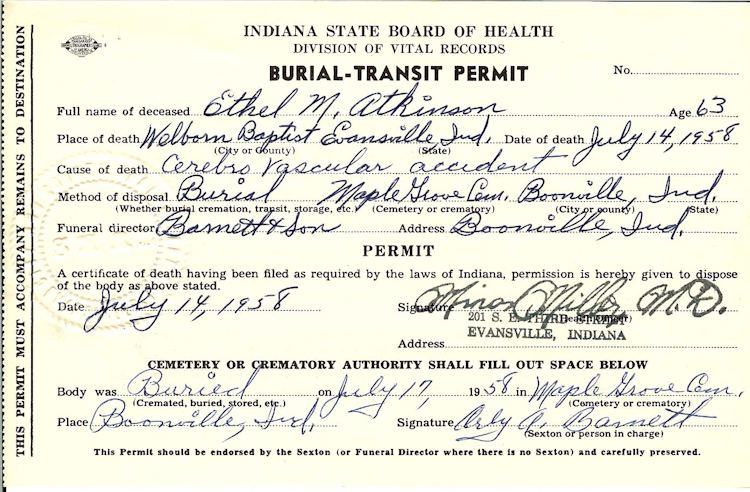 INDIANA STATE BOARD OF HEALTH
DIVISION OF VITAL RECORDS
BURIAL-TRANSIT PERMIT
No.
Full name of deceased Ethel M. Atkinson Age 63
Place of death Welborn Baptist Evansville, Ind. Date of death July 14, 1958
(City or County) (State)
Cause of death Cerebro Vascular accident
Method of disposal Burial Maple Grove Cem. Boonville, Ind.
(Whether burial cremation, transit, storage, etc.) (Cemetery or crematory) (City or county) (State)
Funeral director Barnett & Son Address Boonville, Ind.
PERMIT
A certificate of death having been filed as required by the laws of Indiana, permission is hereby given to dispose
of the body as above stated.
Date July 14, 1958 Signature Minor Miller, M.D.
(Health Officer)
201 S. E. THIRD STREET
EVANSVILLE, INDIANA
Address
CEMETERY OR CREMATORY AUTHORITY SHALL FILL OUT SPACE BELOW
Body was Buried on July 17, 1958 in Maple Grove Cem.
(Cremated, buried, stored, etc.) (Cemetery or crematory)
Place Boonville, Ind. Signature Arly A. Barnett
(Sexton or person in charge)
This Permit should be endorsed by the Sexton (or Funeral Director where there is no Sexton) and carefully preserved.
THIS PERMIT MUST ACCOMPANY REMAINS TO DESTINATION